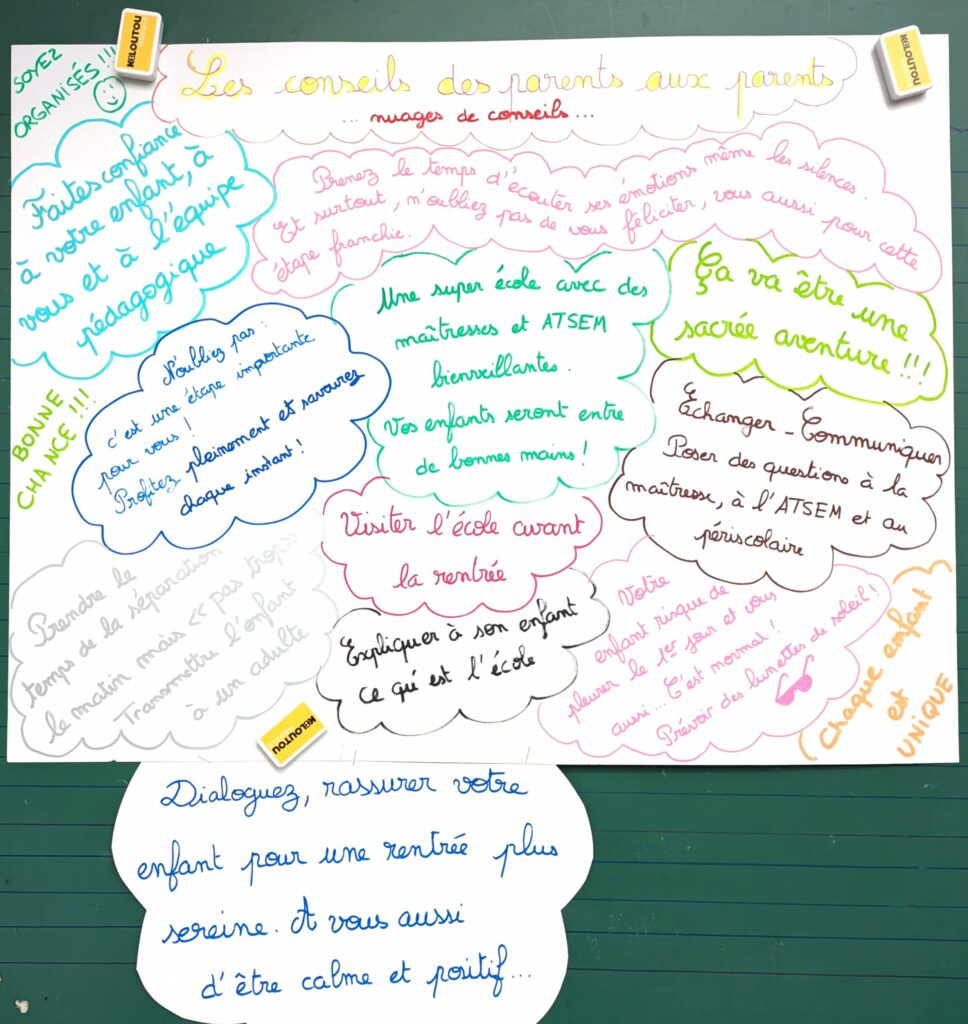 SOYEZ
ORGANISÉS !!!
KELOUTOU
KELOUTOU
Les conseils des parents aux parents
... nuages de conseils...
Faites confiance
à votre enfant, à
vous et à l'équipe
pédagogique
Prenez le temps d'écouter ses émotions même les silences.
Et surtout, n'oubliez pas de vous féliciter, vous aussi pour cette
étape franchie.
Une super école avec des
maîtresses et ATSEM
bienveillantes.
Vos enfants seront entre
de bonnes mains !
Ça va être une
sacrée aventure !!!
N'oubliez pas :
c'est une étape importante
pour vous !
Profitez pleinement et savourez
chaque instant !
BONNE
CHANCE !!!!
Echanger - Communiquer
Poser des questions à la
maîtresse, à l'ATSEM et au
périscolaire
Visiter l'école avant
la rentrée
Prendre le
temps de la séparation
le matin mais << pas trop >>
Transmettre l'enfant
à un adulte
Expliquer à son enfant
ce qu'est l'école
Votre
enfant risque de
pleurer le 1er jour et vous
aussi... C'est normal !
Prévoir des lunettes de soleil !
Chaque enfant
est
UNIQUE
KELOUTOU
Dialoguez, rassurer votre
enfant pour une rentrée plus
sereine. A vous aussi
d'être calme et positif...